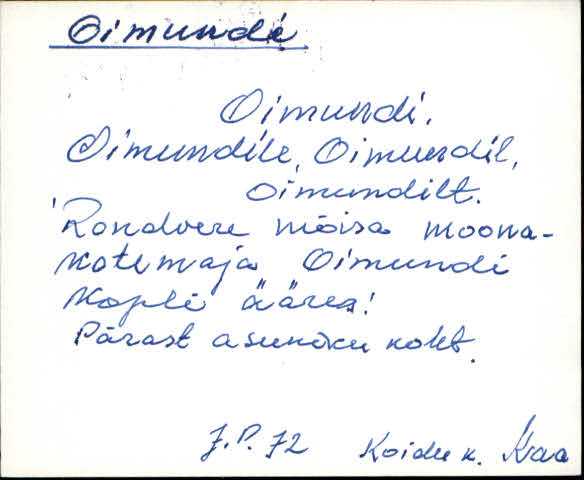 Oimundi
Oimundi,
Oimundile, Oimundil,
Oimundilt.
Rondvere mõisa moona-
katemaja Oimundi
Kopli ääres!
Pärast asuniku koht.
J.P. 72 Koidu k. Kaa